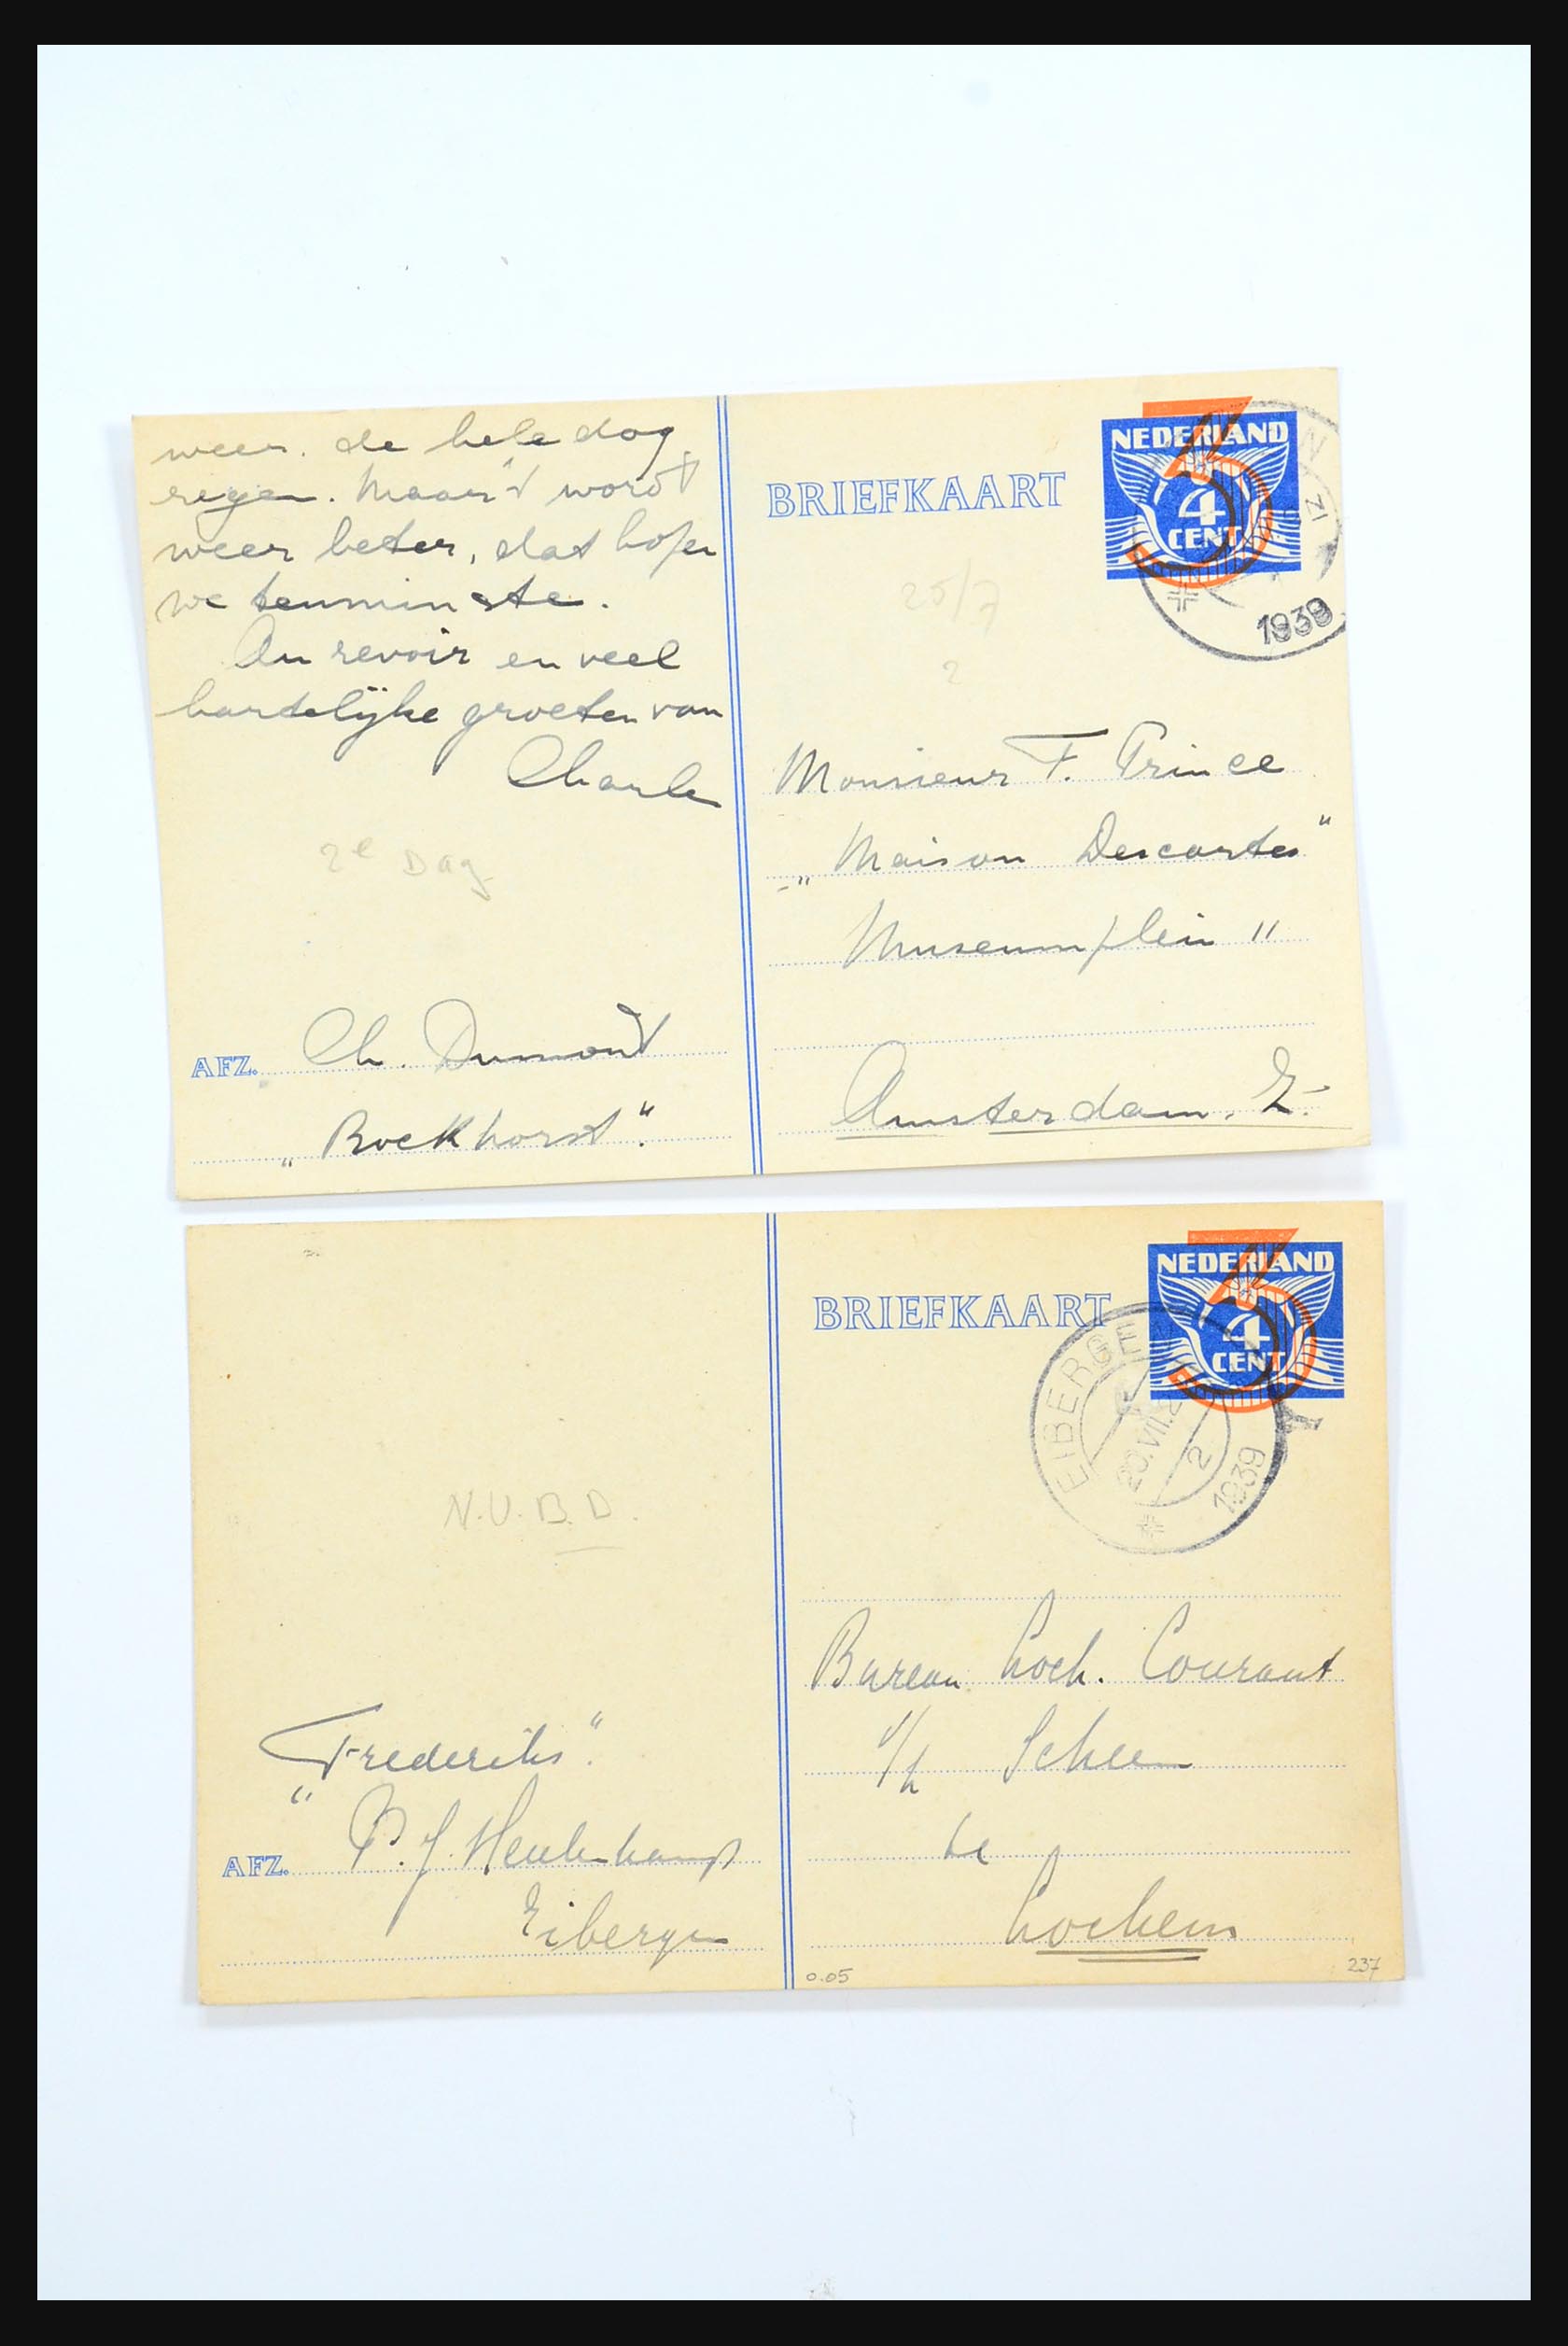 weer. de hele dag
regen. Maar 't wordt
weer beter, dat hopen
we tenminste.
Au revoir en veel
hartelijke groeten van
Charles
2e Dag
AFZ. Ch. Dumont
„Bockhorst".
BRIEFKAART
NEDERLAND
3
4
CENT
1939
25/7
2
Monsieur F. Prince
„Maison Descartes"
Museumplein 11
Amsterdam. Z.
N.V.B.D.
„Frederiks".
AFZ. P. J.
Eibergen
BRIEFKAART
NEDERLAND
3
4
CENT
EIBERGE
20.VII.
2
1939
Bureau Loch. Courant
v/h Scheen
te
Lochem
0.05
237